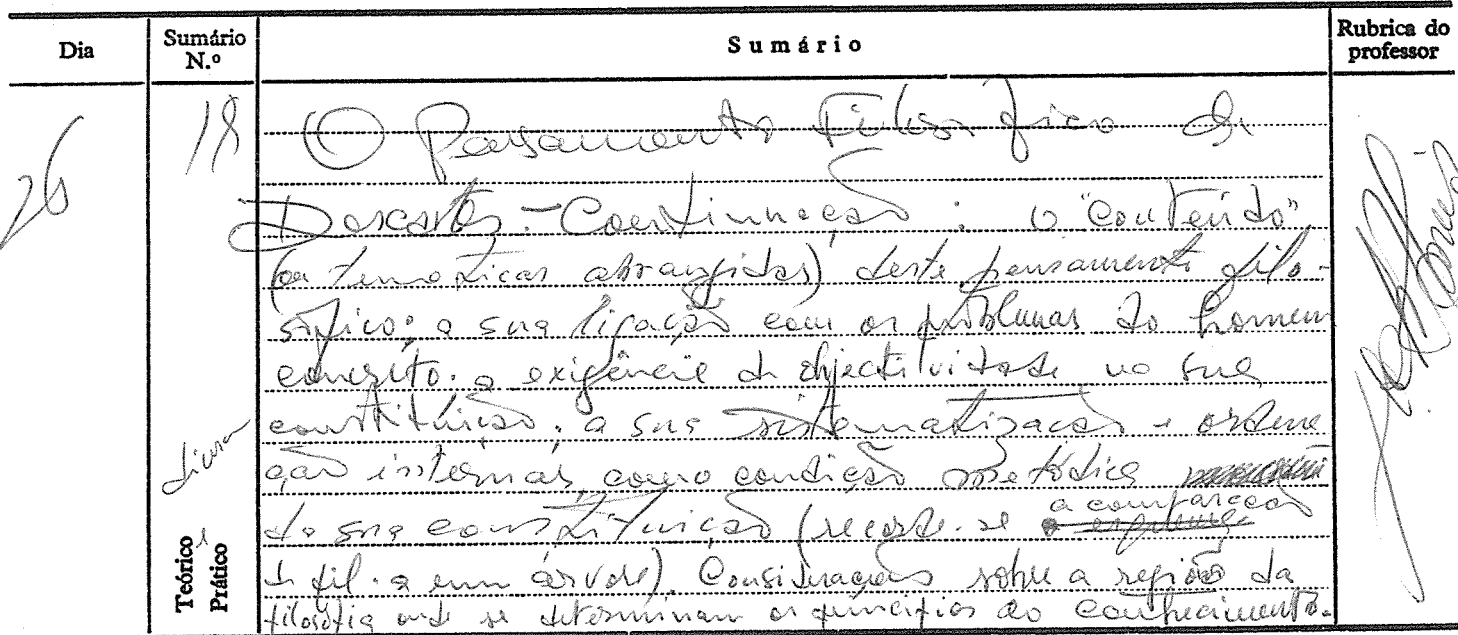 Dia Sumário N.º Sumário Rubrica do professor
26 18 O Pensamento Filosófico de
Descartes - Continuação: o "conteúdo"
(ou temáticas abrangidas) deste pensamento filo-
sófico; a sua ligação com os problemas do homem
concreto. a exigência de objectividade na sua
constituição; a sua sistematização e ordena
ção internas como condição metódica
da sua constituição (recorde-se a comparação
d fil. a uma árvore). Considerações sobre a região da
filosofia onde se determinam os princípios do conhecimento.
Teórico
Prático